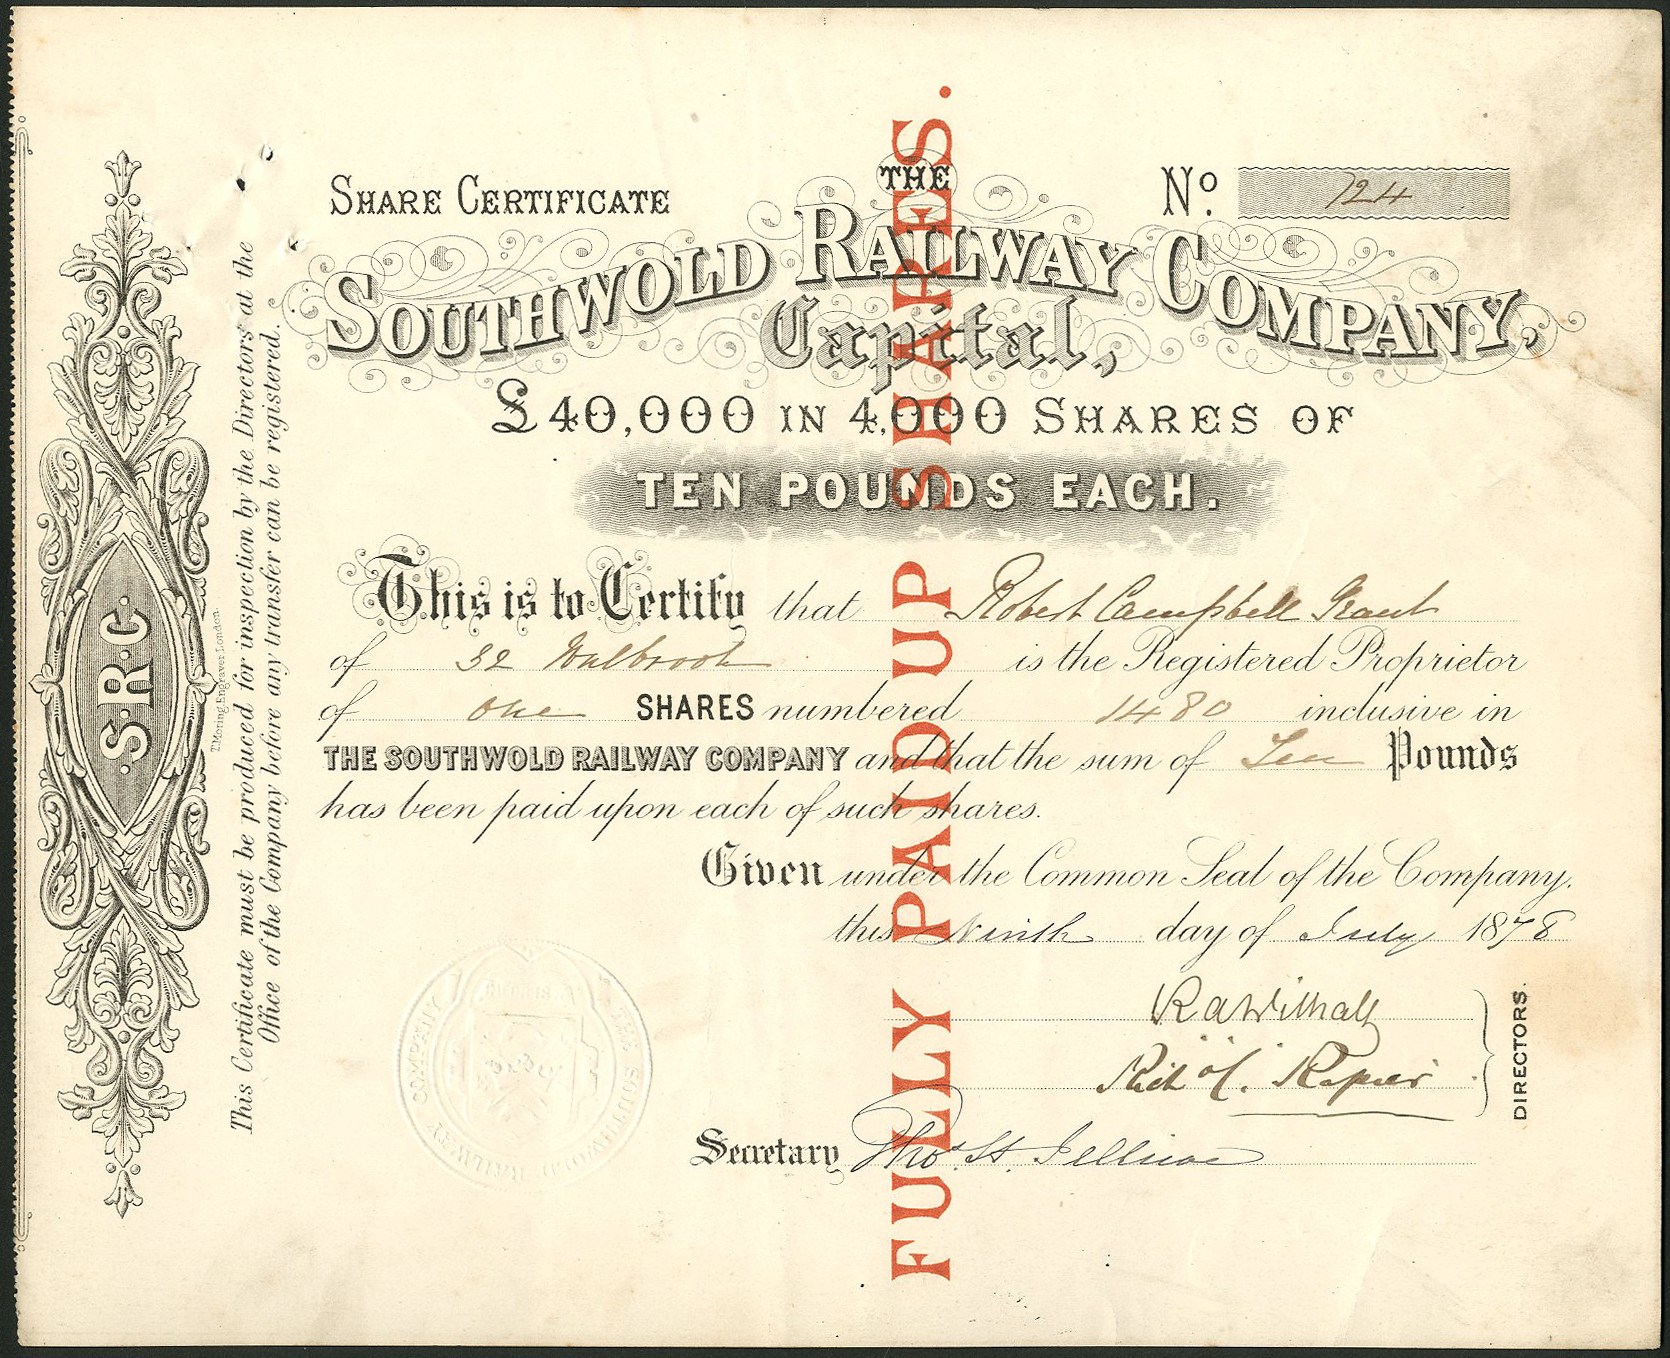 SHARE CERTIFICATE
No. 724
THE
SOUTHWOLD RAILWAY COMPANY,
Capital,
£40,000 IN 4,000 SHARES OF
TEN POUNDS EACH.
This is to Certify that Robert Campbell Grant
of 32 Walbrook is the Registered Proprietor
of One SHARES numbered 1480 inclusive in
THE SOUTHWOLD RAILWAY COMPANY and that the sum of Ten Pounds
has been paid upon each of such shares.
Given under the Common Seal of the Company.
this Ninth day of July 1878
R A Withall
Rich'd C. Rapier
DIRECTORS.
Secretary Thos. H. Jellicoe
FULLY PAID UP SHARES.
S.R.C.
T. Moring Engraver London.
This Certificate must be produced for inspection by the Directors at the
Office of the Company before any transfer can be registered.
THE SOUTHWOLD RAILWAY COMPANY